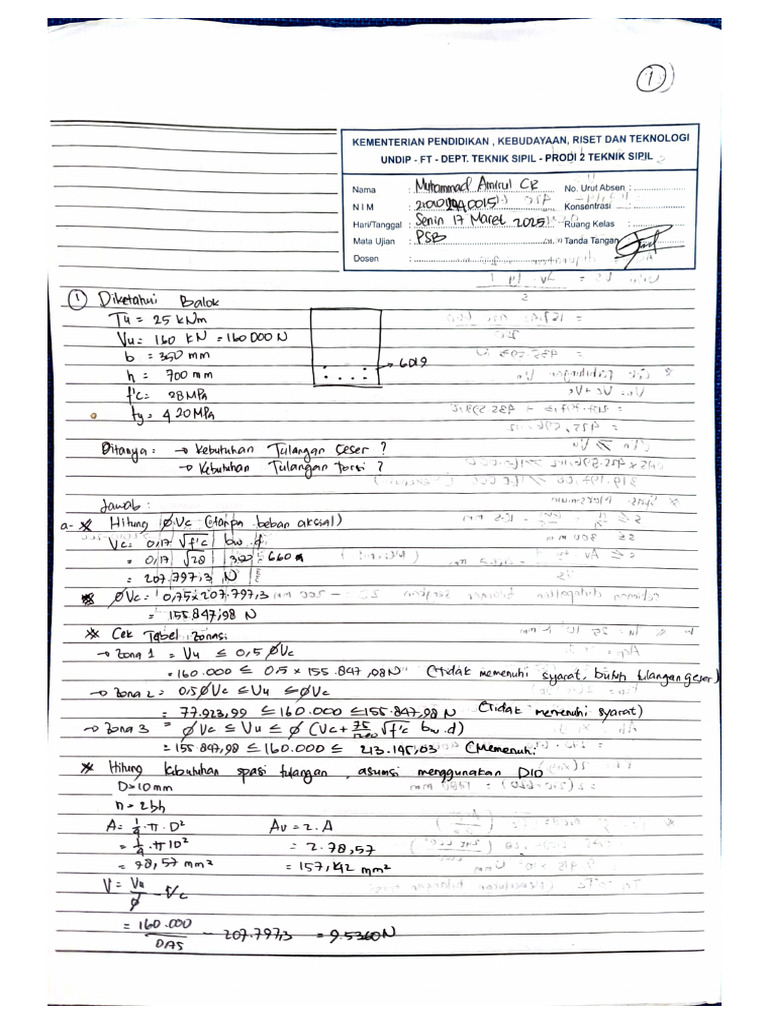 1
KEMENTERIAN PENDIDIKAN , KEBUDAYAAN, RISET DAN TEKNOLOGI
UNDIP - FT - DEPT. TEKNIK SIPIL - PRODI 2 TEKNIK SIPIL
Nama : Muhammad Amirul CR No. Urut Absen :
N I M : Konsentrasi :
Hari/Tanggal : Senin 17 Maret 2025 Ruang Kelas :
Mata Ujian : PSB Tanda Tangan
Dosen :
① Diketahui Balok
Tu = 25 kNm
Vu = 160 kN = 160 000 N
b = 350 mm
→ 6D19
h = 700 mm
f'c = 28 MPa
fy = 420 MPa
Ditanya : → Kebutuhan Tulangan Geser ?
→ Kebutuhan Tulangan torsi ?
Jawab :
a. * Hitung ØVc (tanpa beban aksial)
Vc = 0,17 √f'c bw . d
= 0,17 √28 350 . 660
= 207.797,3 N
* ØVc = 0,75 x 207.797,3
= 155.847,98 N
* Cek Tabel Zonasi
→ Zona 1 = Vu ≤ 0,5 ØVc
= 160.000 ≤ 0,5 x 155.847,98 N (Tidak memenuhi syarat, butuh tulangan geser)
→ Zona 2 = 0,5 ØVc ≤ Vu ≤ ØVc
= 77.923,99 ≤ 160.000 ≤ 155.847,98 N (Tidak memenuhi syarat)
→ Zona 3 = ØVc ≤ Vu ≤ Ø (Vc + √f'c bw . d)
= 155.847,98 ≤ 160.000 ≤ 213.145,03 (Memenuhi)
* Hitung kebutuhan spasi tulangan , asumsi menggunakan D10
D = 10 mm
n = 2 bh
A = 1/4 . π . D² Av = 2 . A
= 1/4 . π 10² = 2 . 78,57
= 78,57 mm² = 157,142 mm²
V = Vu/Ø - Vc
= 160.000/0,75 - 207.797,3 = 9.5360 N